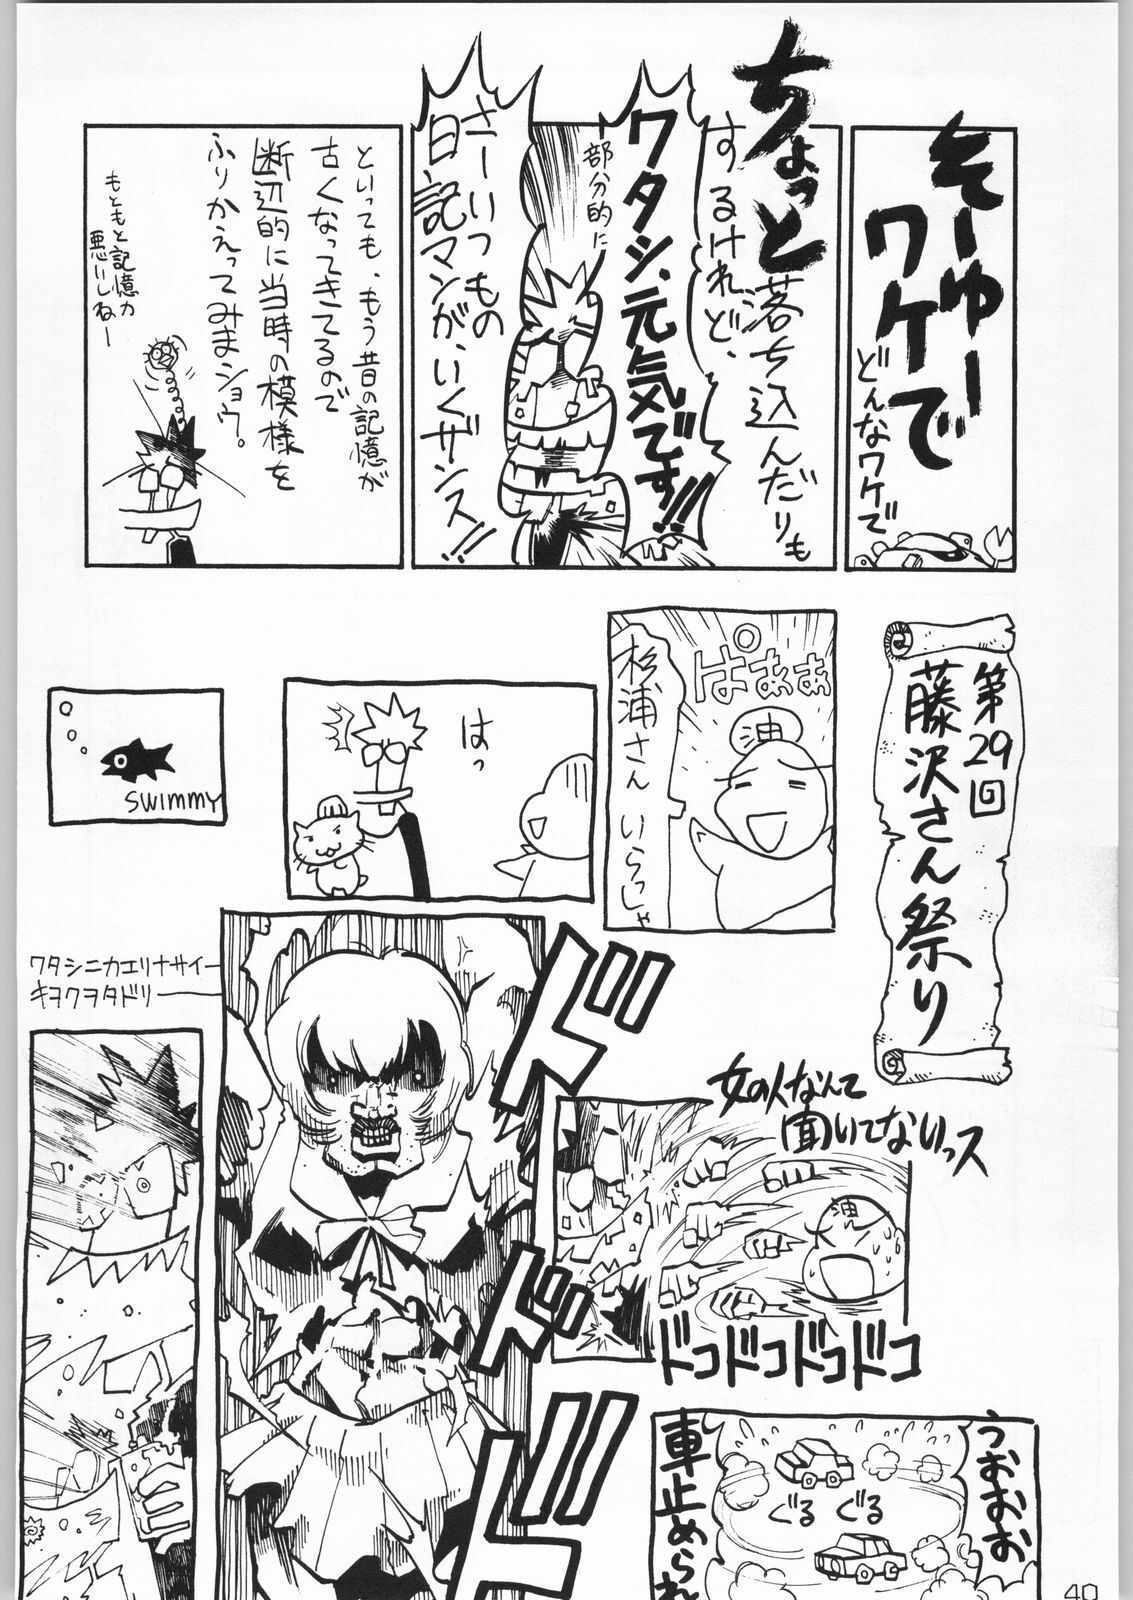 そーゆー
ワケで
どんなワケで
ちょっと
落ち込んだりも
するけれど、
ワタシ、元気です!!
部分的に
さーいつもの
日記マンガ、いくザンス!!
といっても、もう昔の記憶が
古くなってきてるので
断辺的に当時の模様を
ふりかえってみまショウ。
もともと記憶力
悪いしねー
第29回
藤沢さん祭り
ぱぁぁぁ
油
杉浦さんいらっしゃ
はっ
SWIMMY
ワタシニカエリナサイー
キヲクヲタドリー
ドドドド
女の人なんて
聞いてないっス
油
ドコドコドコドコ
うおおお
ぐる
ぐる
車止められ
40